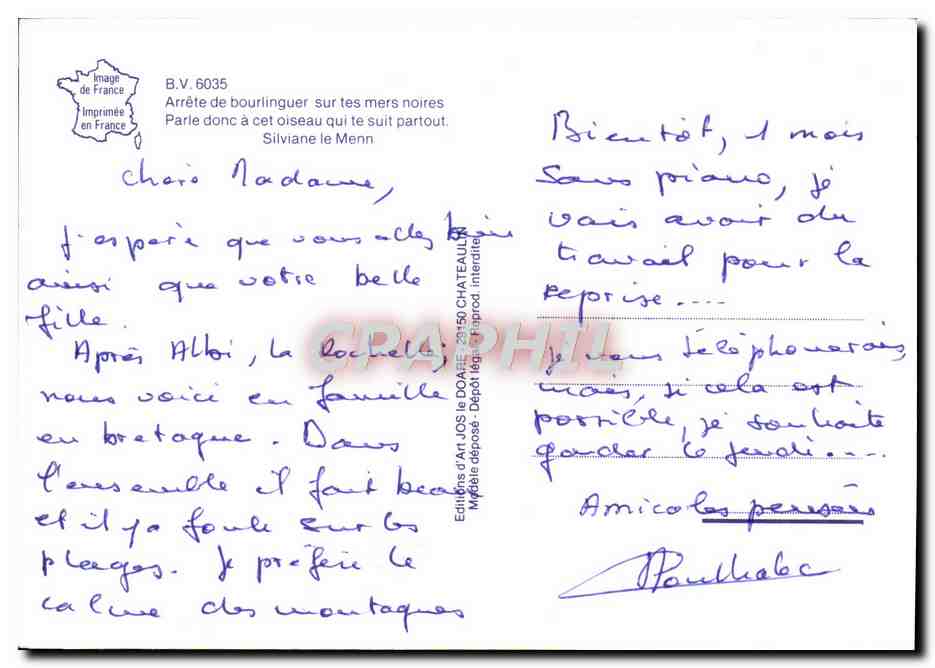 Image
de France
Imprimée
en France
B.V. 6035
Arrête de bourlinguer sur tes mers noires
Parle donc à cet oiseau qui te suit partout.
Silviane le Menn
Chère Madame,
J'espère que vous allez bien
ainsi que votre belle
fille.
Après Albi, la Rochelle,
nous voici en famille
en bretagne. Dans
l'ensemble il fait beau
et il y a foule sur les
plages. Je préfère le
calme des montagnes
Editions d'Art JOS le DOARE - 29150 CHATEAULIN
Modèle déposé - Dépôt légal - Reprod. interdite
CPAPHIL
Bientôt, 1 mois
sans piano, je
vais avoir du
travail pour la
reprise....
Je vous téléphonerais,
mais, si cela est
possible, je souhaite
garder le jeudi....
Amicales pensées